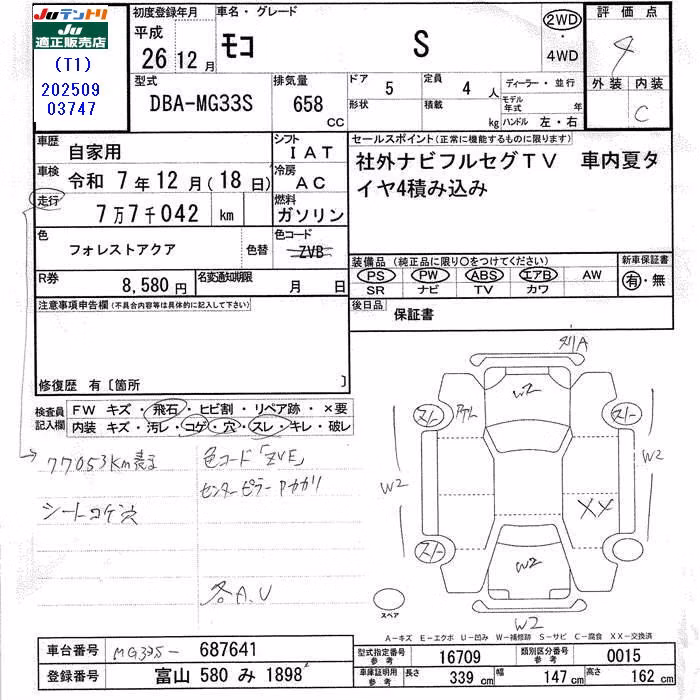 JUテントリ
JU
適正販売店
(T1)
202509
03747
初度登録年月
平成
26 12 月
車名・グレード
モコ S
2WD
・
4WD
評価点
4
外装 内装
C
型式
DBA-MG33S
排気量
658
CC
ドア 5
形状
定員 4 人
積載 kg
ディーラー・並行
モデル年式 年
ハンドル 左・右
車歴
自家用
シフト
IAT
車検
令和 7年12月(18日)
冷房
AC
走行
7万7千042 km
燃料
ガソリン
色
フォレストアクア
色替
色コード
ZVB
R券
8,580円
名変通知期限
月 日
注意事項申告欄(不具合内容等は具体的に記入して下さい)
修復歴 有〔箇所 〕
セールスポイント(正常に機能するものに限ります)
社外ナビフルセグTV 車内夏タ
イヤ4積み込み
装備品(純正品に限り〇をつけてください)
新車保証書
PS PW ABS エアB AW
SR ナビ TV カワ
有・無
後日品
保証書
検査員
記入欄
FW キズ・飛石・ヒビ割・リペア跡・×要
内装 キズ・汚レ・コゲ・穴・スレ・キレ・破レ
77053Km表示
シートコゲ穴
色コード「ZVE」
センターピラーアカガリ
各A.U
W2
スノー
スノー
W2
W2
XX
スノー
W2
スペア
W2
A-キズ E-エクボ U-凹み W-補修跡 S-サビ C-腐食 XX-交換済
車台番号
MG33S- 687641
登録番号
富山 580 み 1898
型式指定番号
参考
16709
類別区分番号
参考
0015
車庫証明用
参考
長さ 339 cm
幅 147 cm
高さ 162 cm